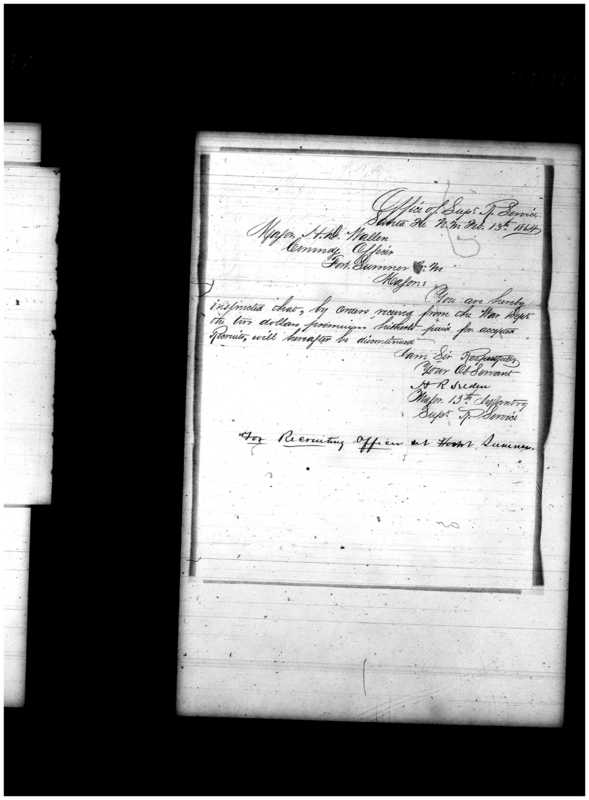 Office of Supt R. Service
Santa Fe N.M. Dec. 13th 1864
Major H. D. Wallen
Commdg Officer
Fort Sumner N. M.
Major:
You are hereby
instructed that, by orders received from the War Dept
the two dollars premium hitherto paid for accepted
Recruits, will hereafter be discontinued
I am Sir Respectfully
Your Obt Servant
H R Selden
Major 13th Infantry
Supt R. Service
For Recruiting Officer at Fort Sumner.